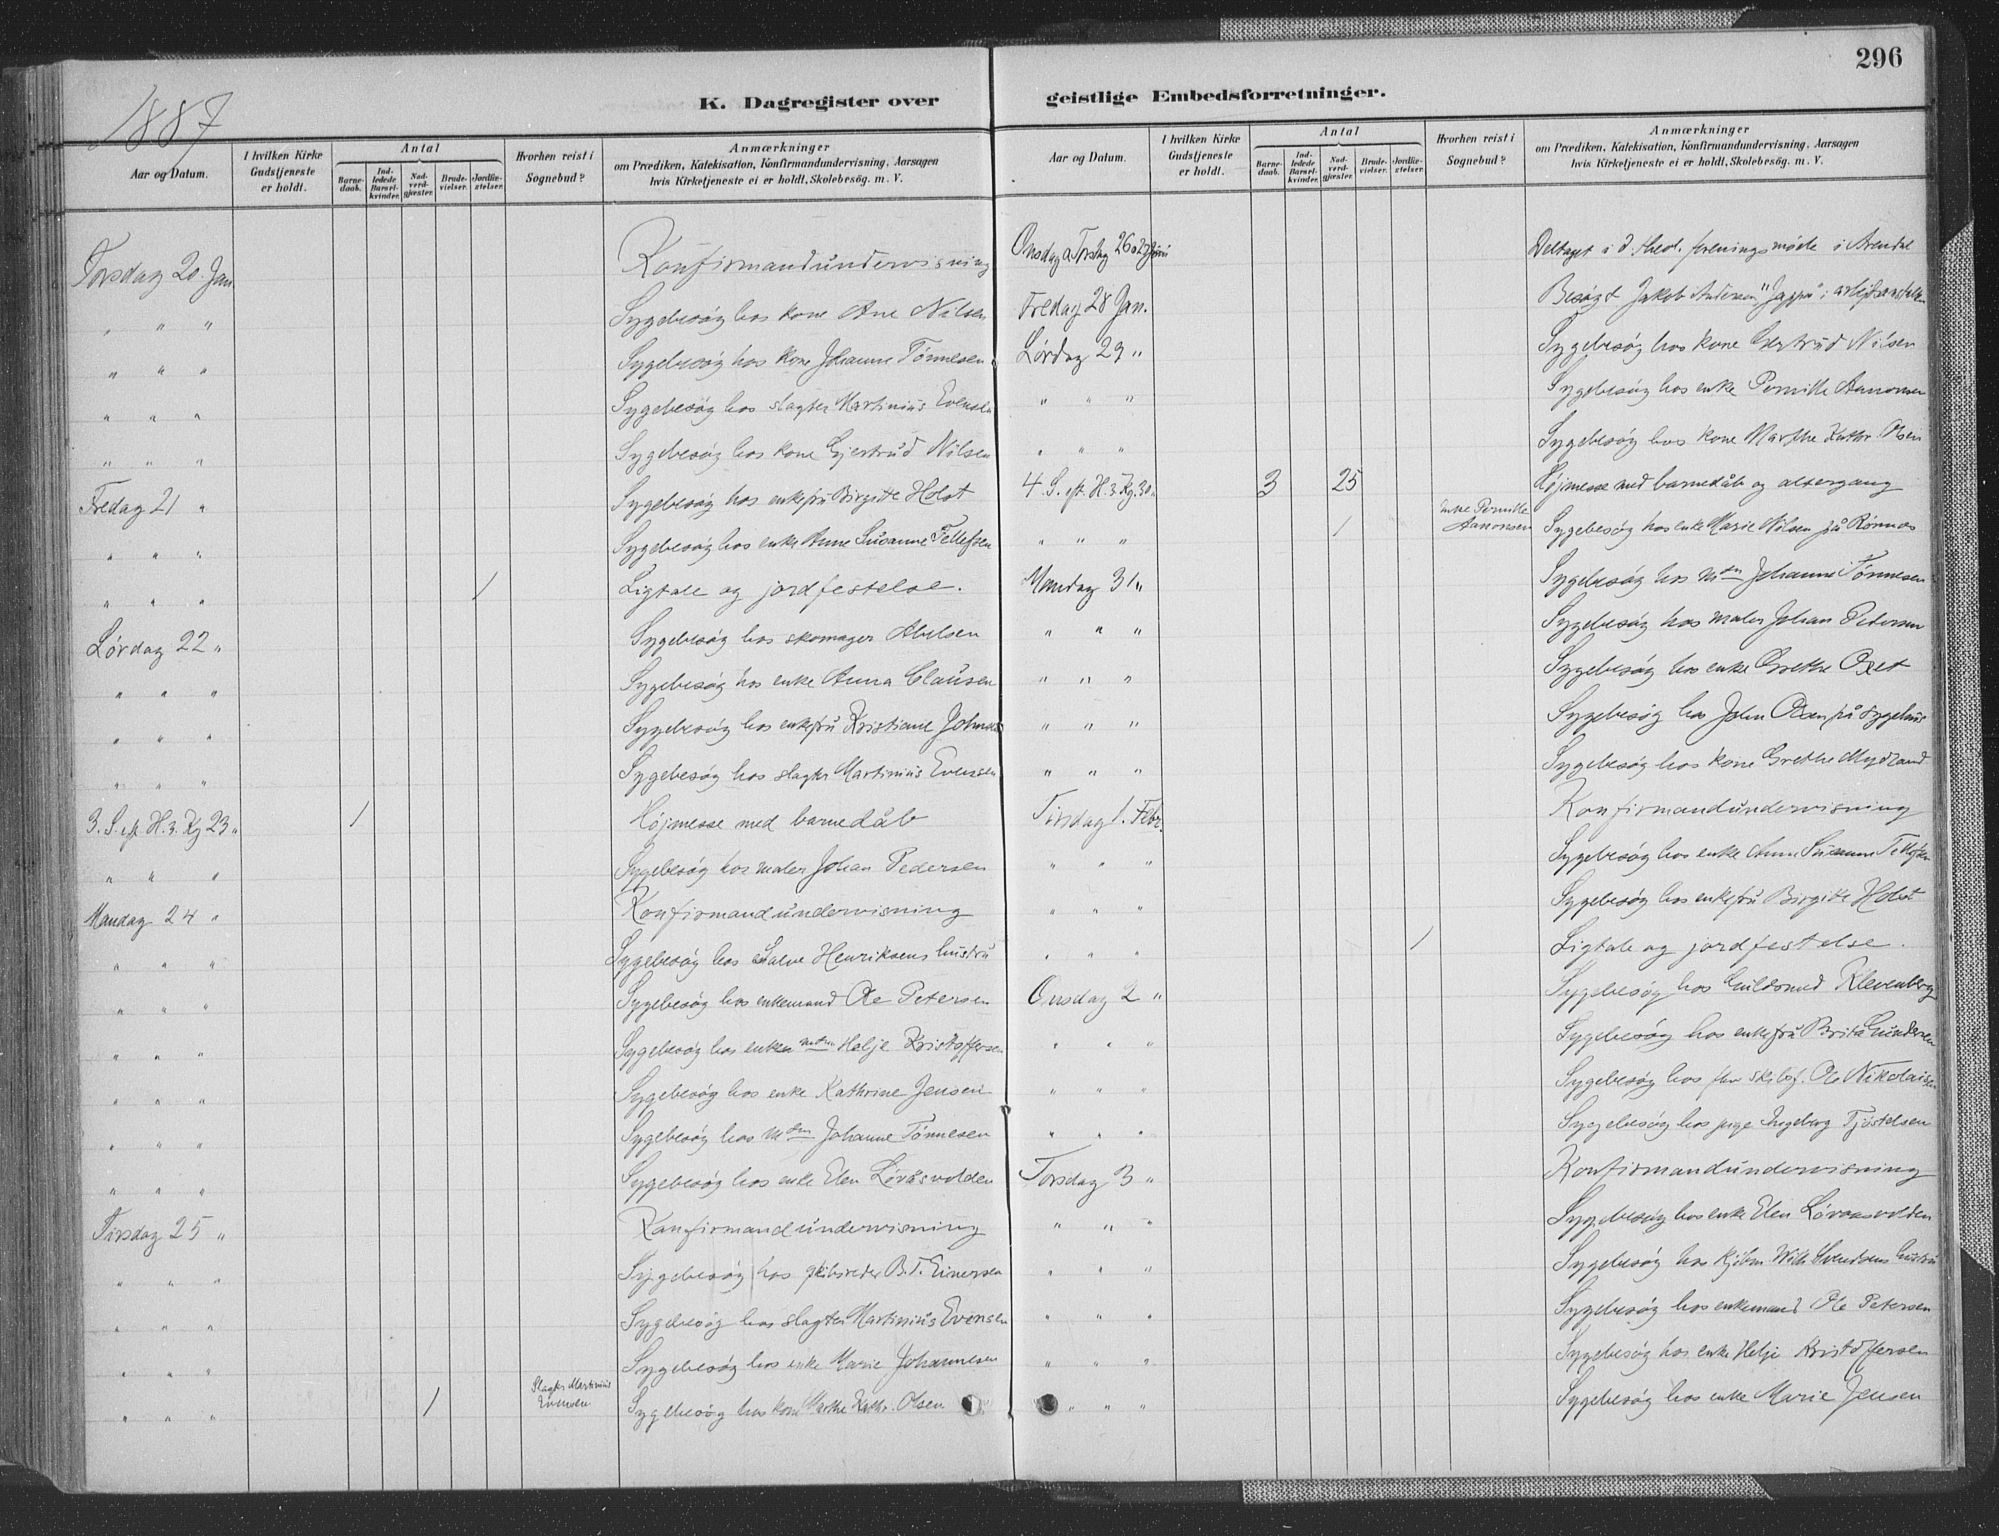 296
1887
K. Dagregister over geistlige Embedsforretninger.
Aar og Datum.
I hvilken Kirke Gudstjeneste er holdt.
Antal
Barnedaab.
Indledede Barselkvinder.
Nadverdgjæster.
Brudevielser.
Jordfæstelser.
Hvorhen reist i Sognebud?
Anmærkninger
om Prædiken, Katekisation, Konfirmandundervisning, Aarsagen
hvis Kirketjeneste ei er holdt, Skolebesøg. m. V.
Torsdag 20. Jan Konfirmandundervisning
" " " Sygebesøg hos kone Ane Nilsen
" " " Sygebesøg hos kone Johanne Tönnesen
" " " Sygebesøg hos slagter Martinius Evensen
" " " Sygebesøg hos kone Gjertrud Nilsen
Fredag 21 " Sygebesøg hos enkefru Birgitte Holst
" " " Sygebesøg hos enke Anne Susanne Tellefsen
" " " 1 Ligtale og jordfestelse.
Lørdag 22 " Sygebesøg hos skomager Abelsen
" " " Sygebesøg hos enke Anna Clausen
" " " Sygebesøg hos enkefru Kristiane
" " " Sygebesøg hos slagter Martinius Evensen
3. S. eft. H. 3. Kg 23 " 1 Højmesse med barnedåb
" " " Sygebesøg hos maler Johan Pedersen
Mandag 24 " Konfirmandundervisning
" " " Sygebesøg hos Henriksens hustru
" " " Sygebesøg hos enkemand Ole Petersen
" " " Sygebesøg hos Helje Kristoffersen
" " " Sygebesøg hos enke Kathrine Jensen
" " " Sygebesøg hos Mdm Johanne Tönnesen
" " " Sygebesøg hos enke Elen Løvåsvolden
Tirsdag 25 " Konfirmandundervisning
" " " Sygebesøg hos skibsreder B. T. Einersen
" " " Sygebesøg hos slagter Martinius Evensen
" " " Sygebesøg hos enke Marie Johannesen
" " " 1 Slagter Martinius Evensen Sygebesøg hos kone Marthe Kathr. Olsen
Aar og Datum.
I hvilken Kirke Gudstjeneste er holdt.
Antal
Barnedaab.
Indledede Barselkvinder.
Nadverdgjæster.
Brudevielser.
Jordfæstelser.
Hvorhen reist i Sognebud?
Anmærkninger
om Prædiken, Katekisation, Konfirmandundervisning, Aarsagen
hvis Kirketjeneste ei er holdt, Skolebesøg. m. V.
Onsdag o Torsdag 26 o 27 Deltaget i d. theol. foreningsmøde i Arendal
Fredag 28 Jan. Besøgt Jakob Andersen
Lørdag 29 " Sygebesøg hos kone Gjertrud Nilsen
" " " Sygebesøg hos enke Pernille Aanonsen
" " " Sygebesøg hos kone Marthe Kathr. Olsen
4. S. eft. H. 3. Kg. 30 " 3 25 Højmesse med barnedåb og altergang
" " " 1 Enke Pernille Aanonsen Sygebesøg hos enke Marie Nilsen på
Mandag 31 " Sygebesøg hos Mdm Johanne Tönnesen
" " " Sygebesøg hos maler Johan Pedersen
" " " Sygebesøg hos enke Grethe
" " " Sygebesøg hos John Olsen på sygehus
" " " Sygebesøg hos kone Grethe Mydland
Tirsdag 1. Febr. Konfirmandundervisning
" " " Sygebesøg hos enke Anne Susanne Tellefsen
" " " Sygebesøg hos enkefru Birgitte Holst
" " " 1 Ligtale og jordfestelse.
Onsdag 2 " Sygebesøg hos Guldsmed Klevenberg
" " " Sygebesøg hos enkefru Brita Gundersen
" " " Sygebesøg hos Ole Nikolaisen
" " " Sygebesøg hos pige Ingeborg Tjöstelsen
Torsdag 3 " Konfirmandundervisning
" " " Sygebesøg hos enke Elen Løvaasvolden
" " " Sygebesøg hos kjøbm. Svendsens hustru
" " " Sygebesøg hos enkemand Ole Petersen
" " " Sygebesøg hos enke Helje Kristoffersen
" " " Sygebesøg hos enke Marie Jensen